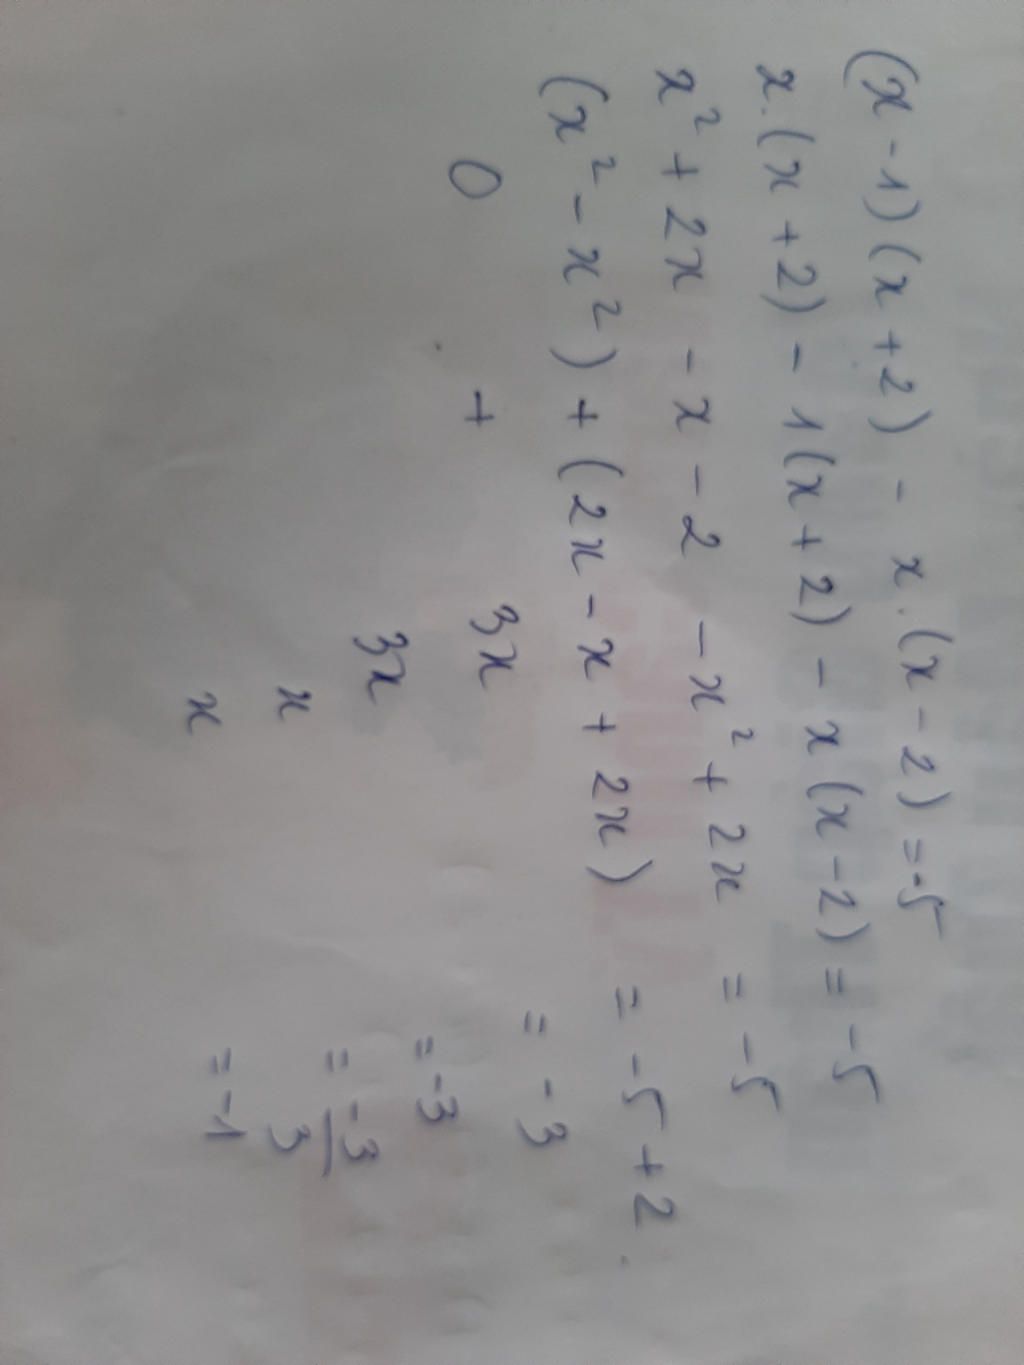 (x - 1)(x + 2) - x.(x - 2) = -5
x.(x + 2) - 1(x + 2) - x(x - 2) = -5
x² + 2x - x - 2 - x² + 2x = -5
(x² - x²) + (2x - x + 2x) = -5 + 2
0 + 3x = -3
3x = -3
x = -3/3
x = -1